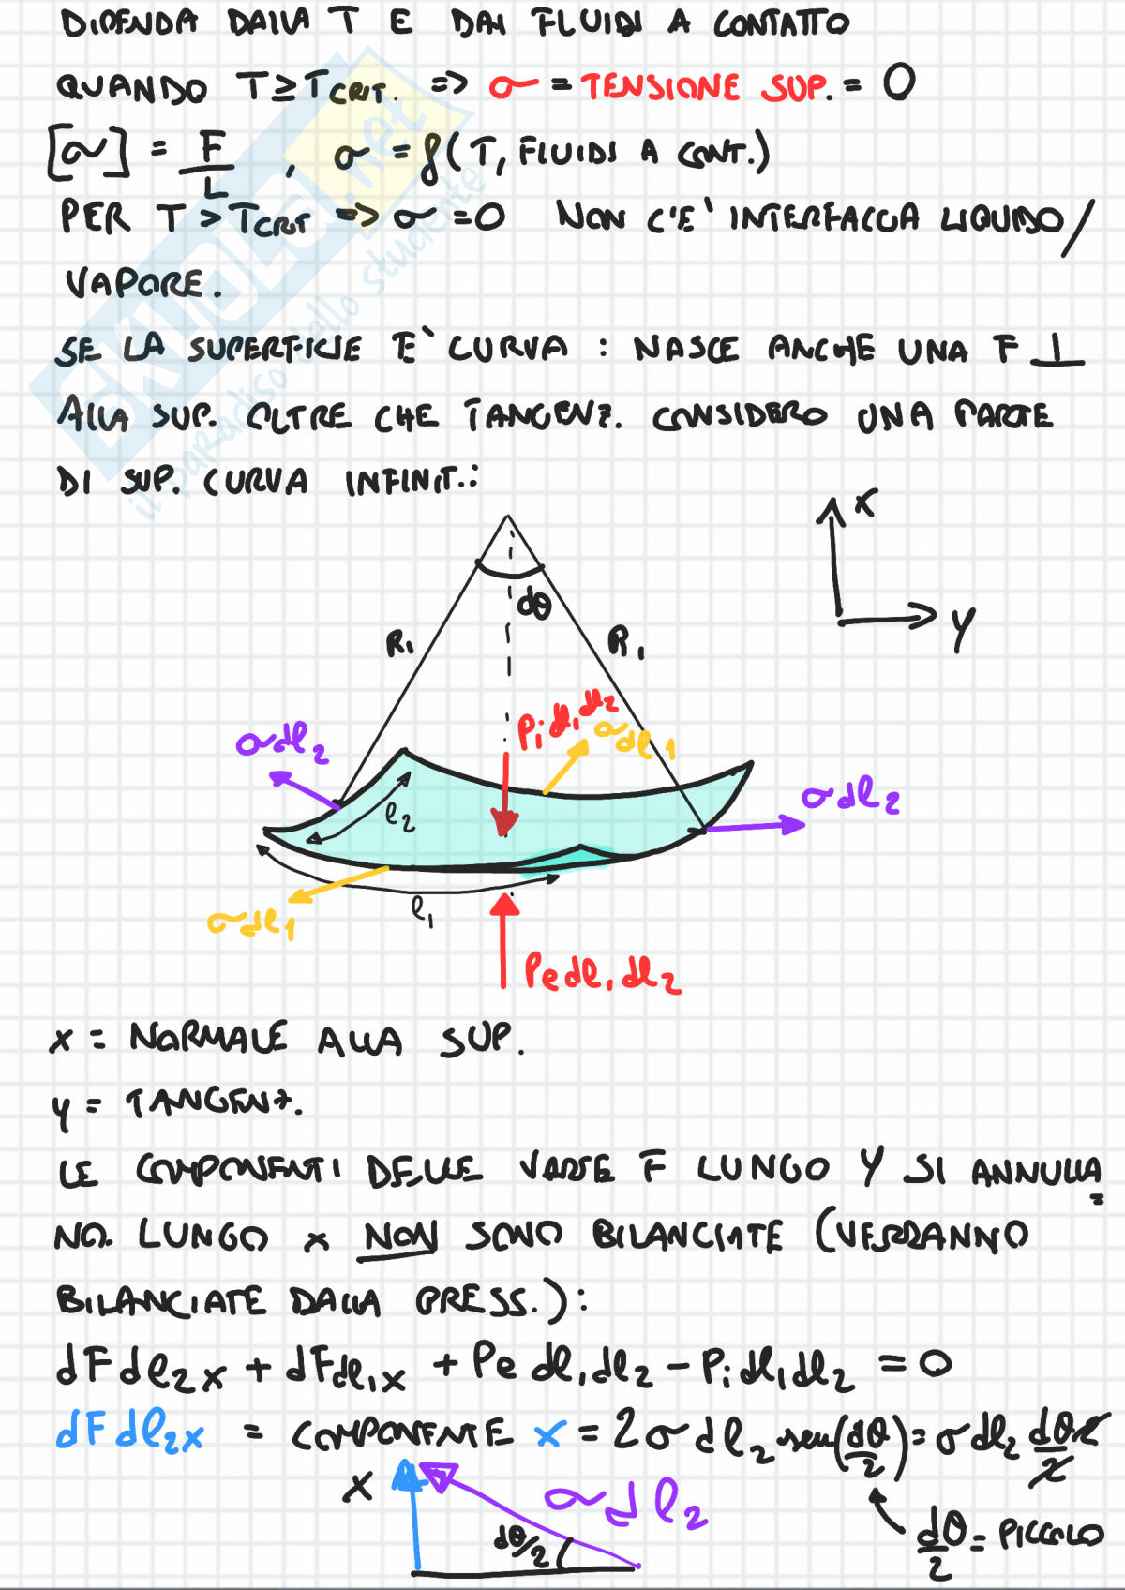 DIPENDA DALLA T E DAI FLUIDI A CONTATTO
QUANDO T ≥ TCRIT. => σ = TENSIONE SUP. = 0
[σ] = F/L , σ = f(T, FLUIDI A CONT.)
PER T > TCRIT => σ = 0 NON C'E' INTERFACCIA LIQUIDO/
VAPORE.
SE LA SUPERFICIE E' CURVA : NASCE ANCHE UNA F ⊥
ALLA SUP. OLTRE CHE TANGENZ. CONSIDERO UNA PARTE
DI SUP. CURVA INFINIT.:
SKUOLA.net
il paradiso dello studente
x
y
dθ
R₁
R₁
Pi dl₁dl₂
σdl₁
σdl₂
σdl₂
l₂
l₁
σdl₁
Pe dl₁dl₂
x = NORMALE ALLA SUP.
y = TANGENZ.
LE COMPONENTI DELLE VARIE F LUNGO Y SI ANNULLA=
NO. LUNGO x NON SONO BILANCIATE (VERRANNO
BILANCIATE DALLA PRESS.):
dFdl₂x + dFdl₁x + Pe dl₁dl₂ - Pi dl₁dl₂ = 0
dFdl₂x = COMPONENTE x = 2σdl₂ sen(dθ/2) = σdl₂ dθ/2 2
x
σdl₂
dθ/2
dθ/2 = PICCOLO